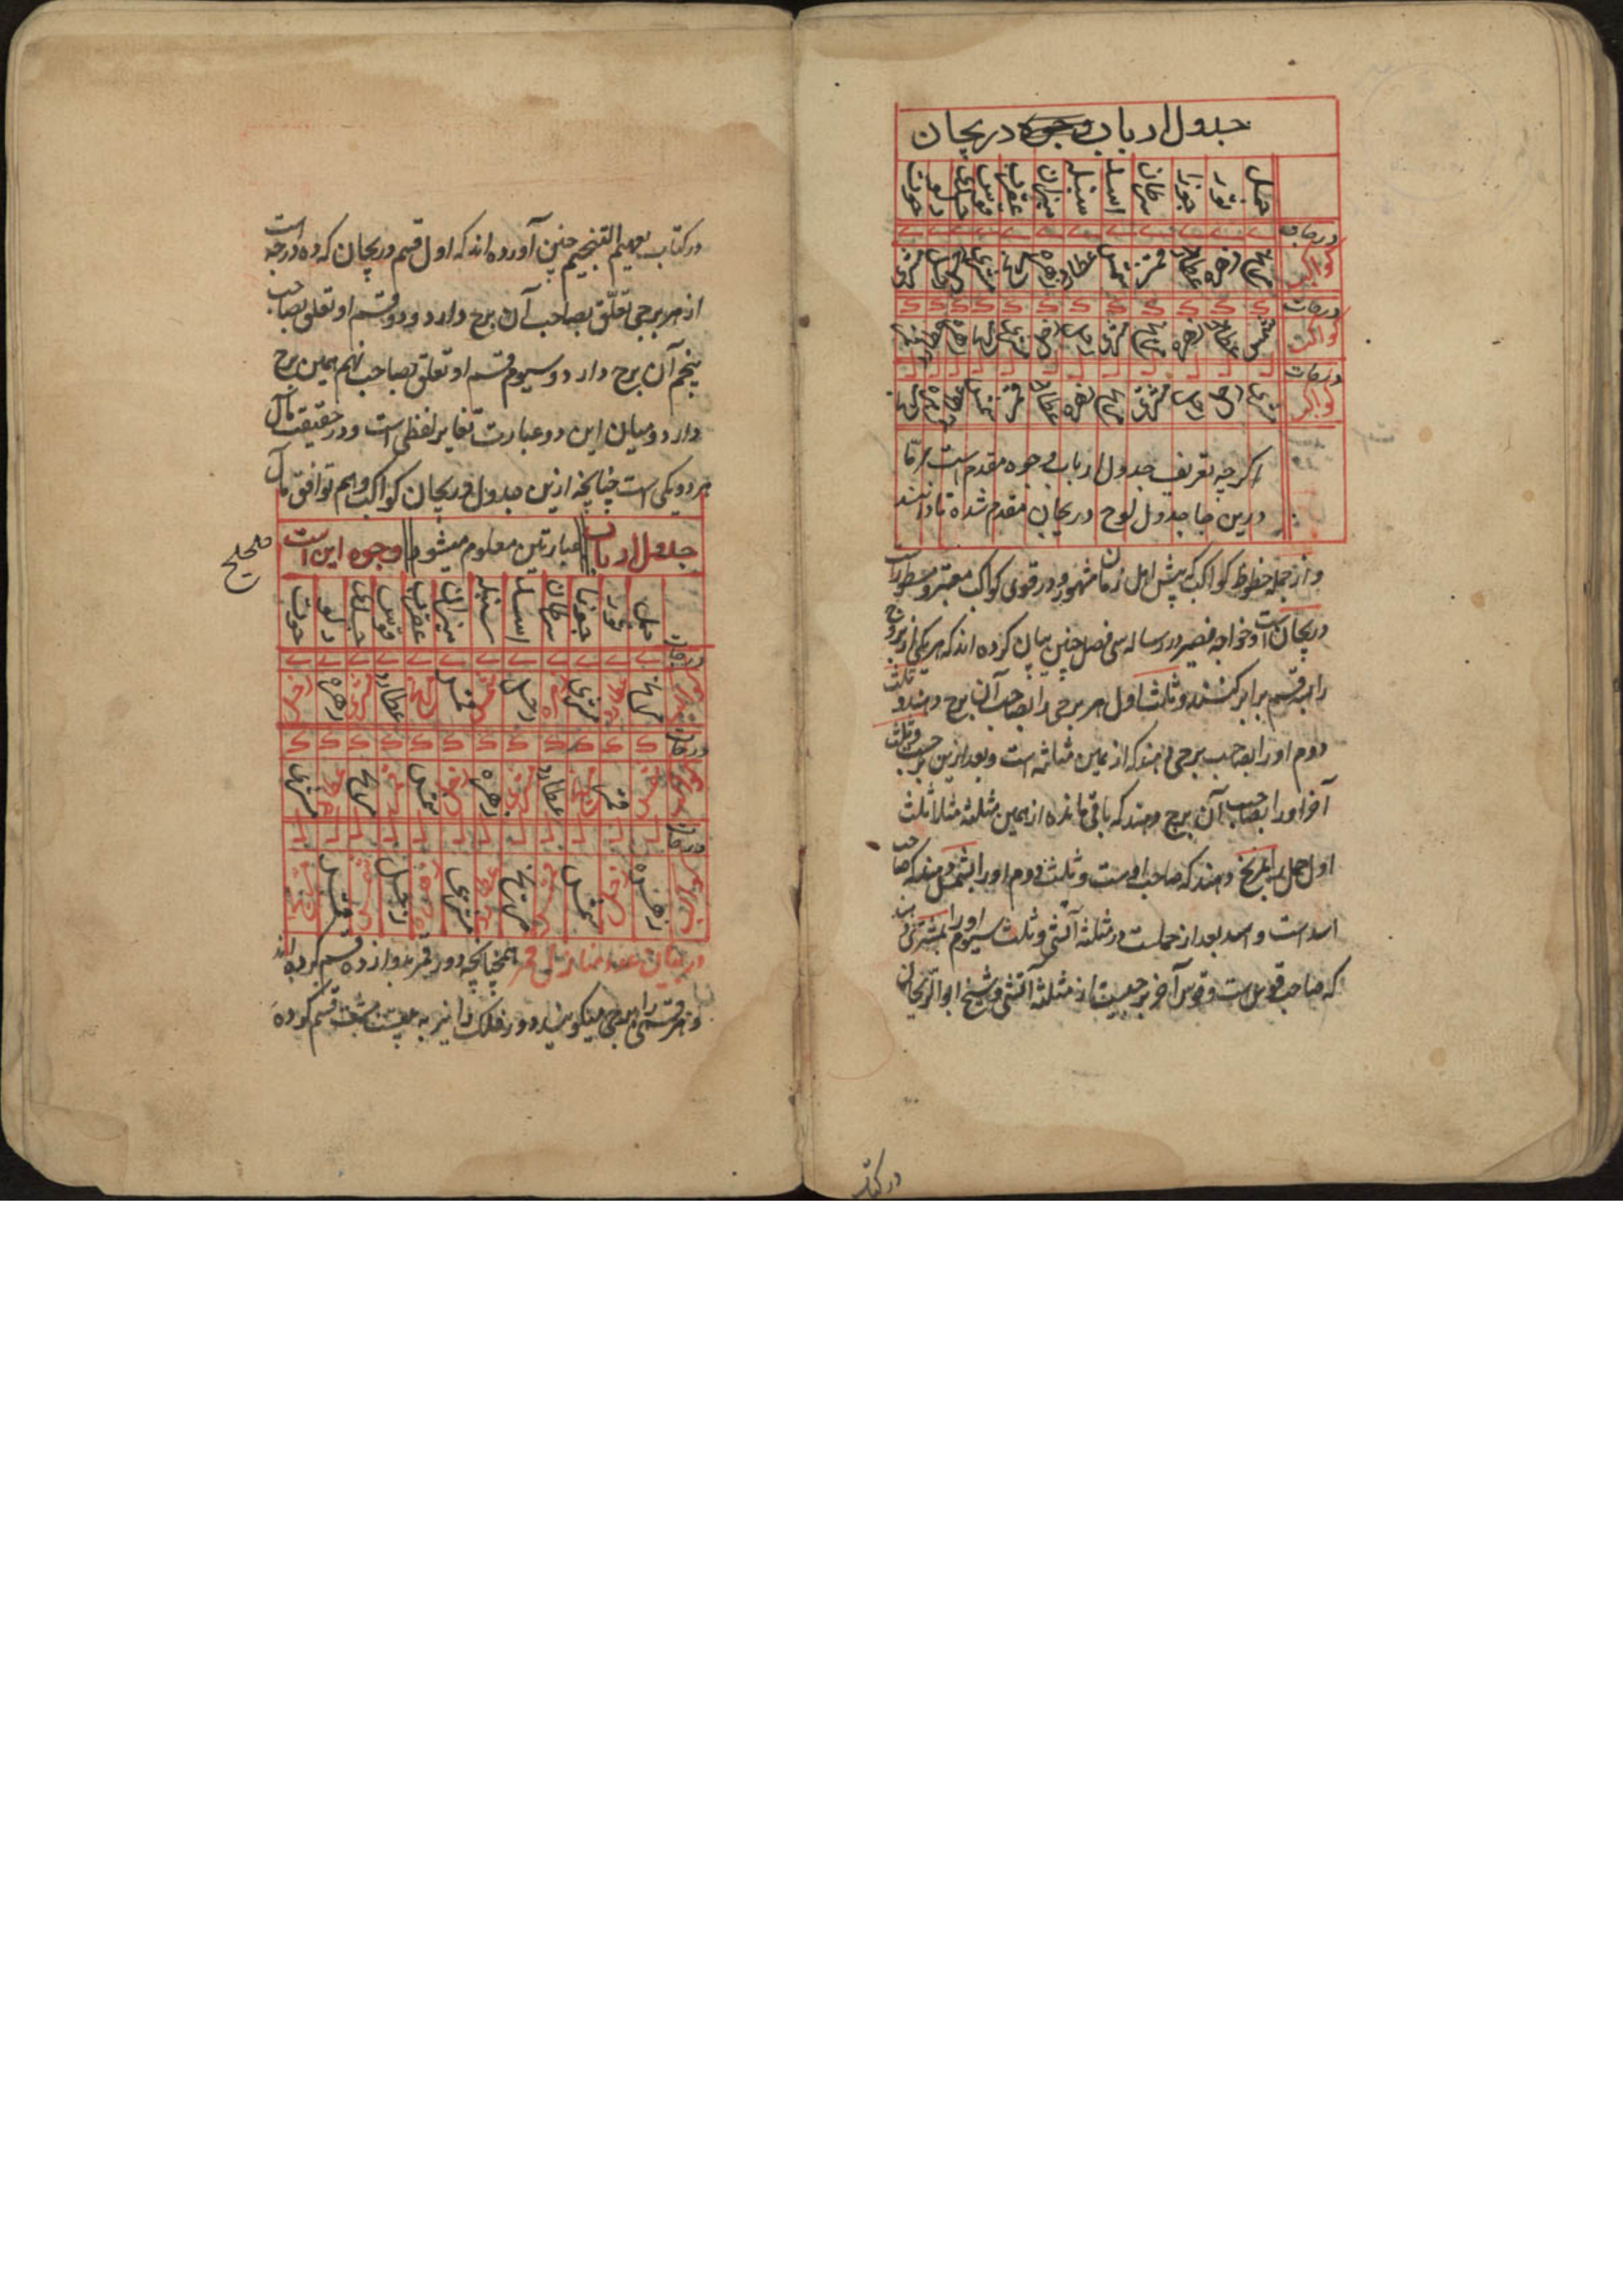 جدول ارباب وجوه دریجان
حمل ثور جوزا سرطان اسد سنبله میزان عقرب قوس جدی دلو حوت
درجات
کواکب مریخ زهره عطارد قمر شمس عطارد زهره مریخ مشتری زحل زحل مشتری
درجات ک ک ک ک ک ک ک ک ک ک ک ک
کواکب شمس عطارد زهره مریخ مشتری زحل زحل مشتری مریخ زهره عطارد قمر
درجات ل ل ل ل ل ل ل ل ل ل ل ل
کواکب مشتری زحل زحل مشتری مریخ زهره عطارد قمر شمس عطارد زهره مریخ
اکرچه تعریف جدول ارباب وجوه مقدم است برقا
درین جا جدول لوح دریجان مقدم شده تا دانند
و از جمله حظوظ کواکب که پیش اهل زمان مشهور و در قوی کواکب معتبر و مسطور است
دریجان است و خواجه نصیر در رساله سی فصل چنین بیان کرده اند که هر یکی از بروج
را بسه قسم برابر کنند و ثلث اول هر برجی را بصاحب آن برج دهند و ثلث
دوم او را بصاحب برجی دهند که از همین مثلثه است و بعد ازین برجست و ثلث
آخر او را بصاحب آن برج دهند که باقی مانده از همین مثلثه مثلا ثلث
اول حمل را بمریخ دهند که صاحب اوست و ثلث دوم او را بشمس دهند که صاحب
اسد است و اسد بعد از حملست در مثلثه آتشی و ثلث سیوم او را بمشتری دهند
که صاحب قوس است و قوس آخر برجیست از مثلثه آتشی و شیخ ابوالریحان
در کتاب
در کتاب تفهیم التنجیم چنین آورده اند که اول قسم دریجان که ده درجه است
از هر برجی تعلق بصاحب آن برج دارد و دوم قسم او تعلق بصاحب
پنجم آن برج دارد و سیوم قسم او تعلق بصاحب نهم همین برج
دارد و میان این دو عبارت تغایر لفظی است و در حقیقت مآل
هر دو یکی است چنانچه ازین جدول دریجان کواکب و هم توافق مآل
جدول ارباب عبارتین معلوم میشود وجوه این است
حمل ثور جوزا سرطان اسد سنبله میزان عقرب قوس جدی دلو حوت
درجات
مریخ عطارد مشتری زهره زحل شمس قمر مریخ عطارد مشتری زهره زحل
درجات ک ک ک ک ک ک ک ک ک ک ک ک
شمس قمر مریخ عطارد مشتری زهره زحل شمس قمر مریخ عطارد مشتری
درجات ل ل ل ل ل ل ل ل ل ل ل ل
زهره زحل شمس قمر مریخ عطارد مشتری زهره زحل شمس قمر مریخ
در بیان عدد منازل قمر همچنانچه دور قمر بدوازده قسم کرده اند
و هر قسمی را برجی میگویند دور فلک را نیز به بیست و هشت قسم کرده